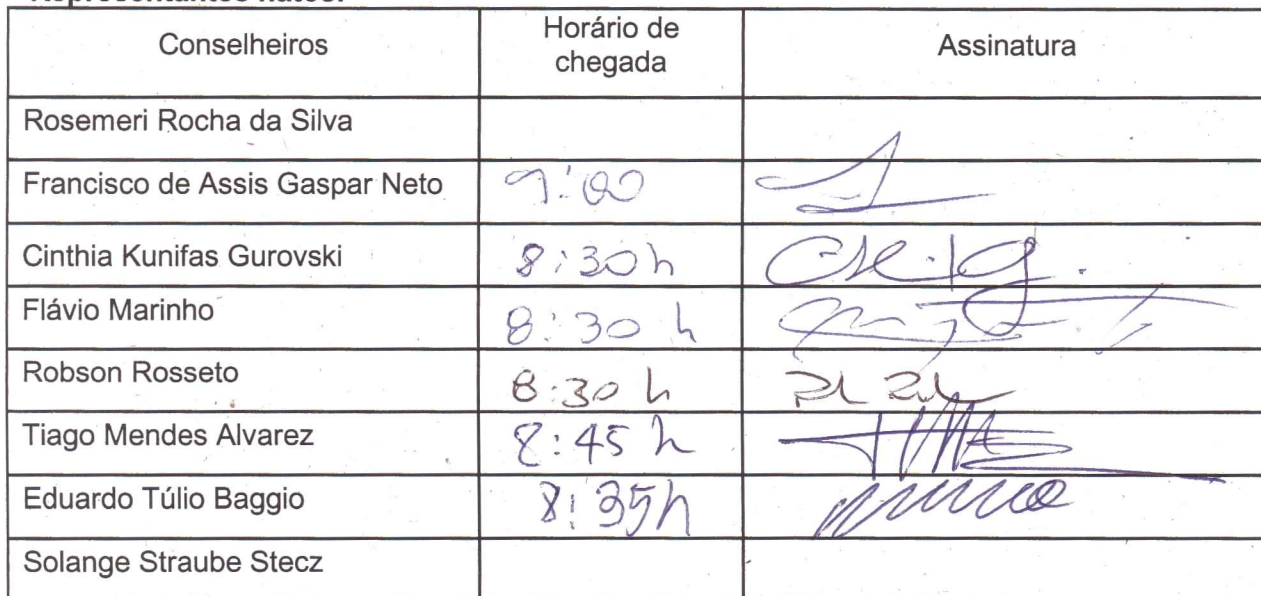 Conselheiros Horário de chegada Assinatura
Rosemeri Rocha da Silva
Francisco de Assis Gaspar Neto 9:00
Cinthia Kunifas Gurovski 8:30h
Flávio Marinho 8:30 h
Robson Rosseto 8:30 h
Tiago Mendes Alvarez 8:45 h
Eduardo Túlio Baggio 8:35h
Solange Straube Stecz